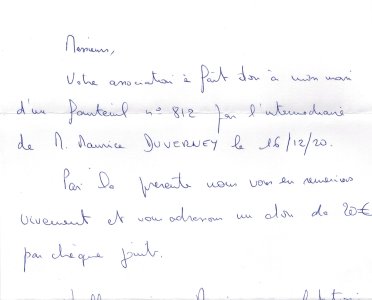 Messieurs,
Votre association à fait don à mon mari
d'un fauteuil n° 812 par l'intermédiaire
de M. Maurice DUVERNEY le 16/12/20.
Par la présente nous vous en remercions
vivement et vous adressons un don de 20€
par chèque joint.